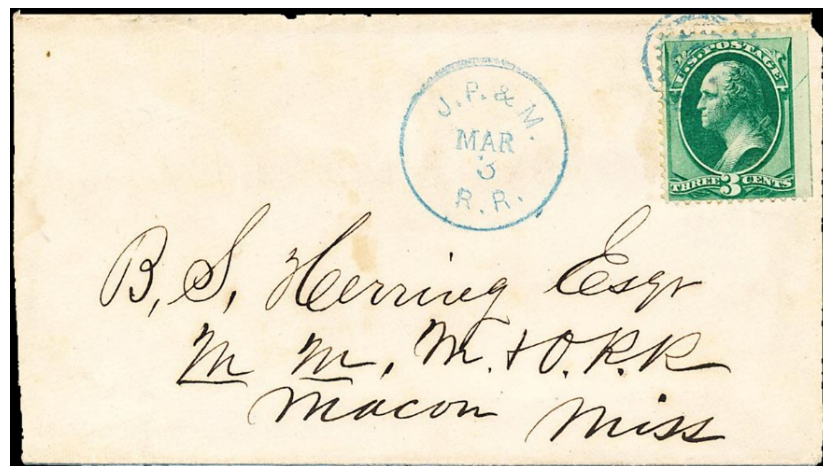 J. P. & M.
MAR
3
R. R.
U.S. POSTAGE
THREE 3 CENTS
B, S, Herring Esqr
M M, M. & O. R. R
Macon Miss